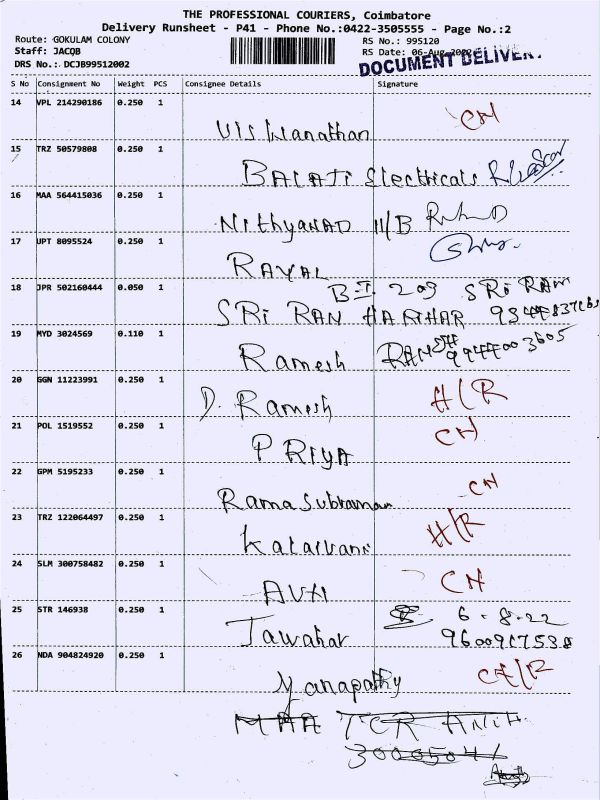 THE PROFESSIONAL COURIERS, Coimbatore
Delivery Runsheet - P41 - Phone No.:0422-3505555 - Page No.:2
Route: GOKULAM COLONY RS No.: 995120
Staff: JACQB RS Date: 06-Aug-2022
DRS No.: DCJB99512002 DOCUMENT DELIVER
S No Consignment No Weight PCS Consignee Details Signature
14 VPL 214290186 0.250 1 Viswanathan CH
15 TRZ 50579808 0.250 1 BALAJI Electricals
16 MAA 564415036 0.250 1 Nithyanad 11/B
17 UPT 8095524 0.250 1 RAYAL
18 JPR 502160444 0.050 1 B II 209 SRI RAM
SRI RAN HARIHAR
19 MYD 3024569 0.110 1 Ramesh 9944003605
20 GGN 11223991 0.250 1 D. Ramesh H/R
21 POL 1519552 0.250 1 PRIYA CH
22 GPM 5195233 0.250 1 Ramasubraman CH
23 TRZ 122064497 0.250 1 Kalaivani H/R
24 SLM 300758482 0.250 1 CH
25 STR 146938 0.250 1 Jawahar 6-8-22
9600967538
26 NDA 904824920 0.250 1 Ganapathy
MAA TCR